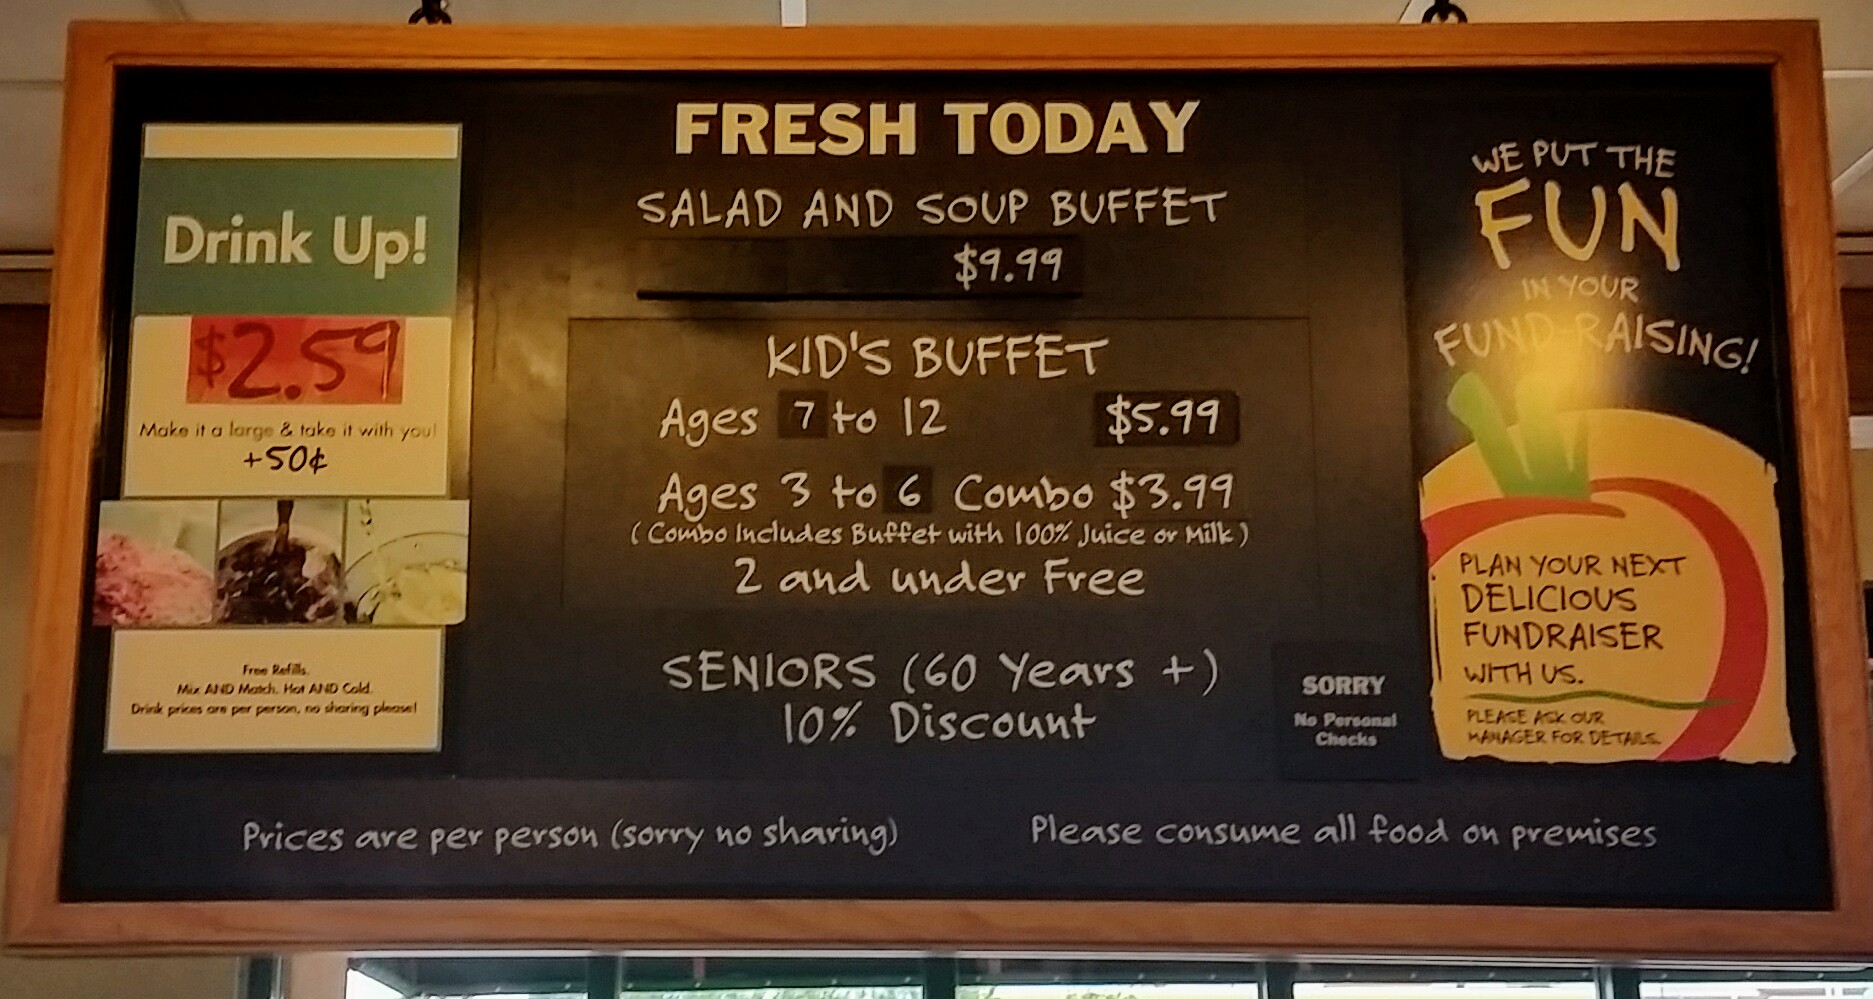 Drink Up!
$2.59
Make it a large & take it with you!
+50¢
Free Refills.
Mix AND Match. Hot AND Cold.
Drink prices are per person, no sharing please!
FRESH TODAY
SALAD AND SOUP BUFFET
$9.99
KID'S BUFFET
Ages 7 to 12 $5.99
Ages 3 to 6 Combo $3.99
(Combo Includes Buffet with 100% Juice or Milk)
2 and under Free
SENIORS (60 Years +)
10% Discount
SORRY
No Personal
Checks
WE PUT THE
FUN
IN YOUR
FUND-RAISING!
PLAN YOUR NEXT
DELICIOUS
FUNDRAISER
WITH US.
PLEASE ASK OUR
MANAGER FOR DETAILS.
Prices are per person (sorry no sharing)
Please consume all food on premises